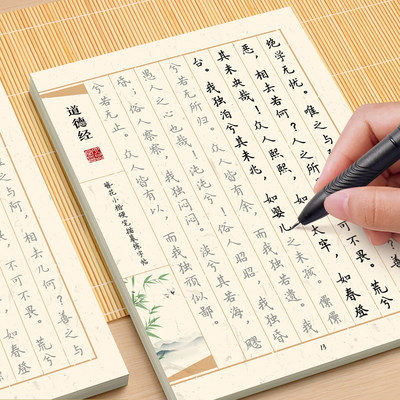 绝学无忧。唯之与
恶，相去若何？人之所
荒兮
其未央哉！众人熙熙，如
太牢，如春登
台。我独泊兮其未兆，如婴儿之未孩。儽儽
兮若无所归。众人皆有余，而我独若遗。我
愚人之心也哉！沌沌兮！俗人昭昭，我独昏
昏，俗人察察，我独闷闷。澹兮其若海，飂
兮若无止。众人皆有以，而我独顽似鄙。
道德经
簪花小楷硬笔描摹练字帖
13
之与阿，相去几何？善之与
不可不畏。荒兮
如春登